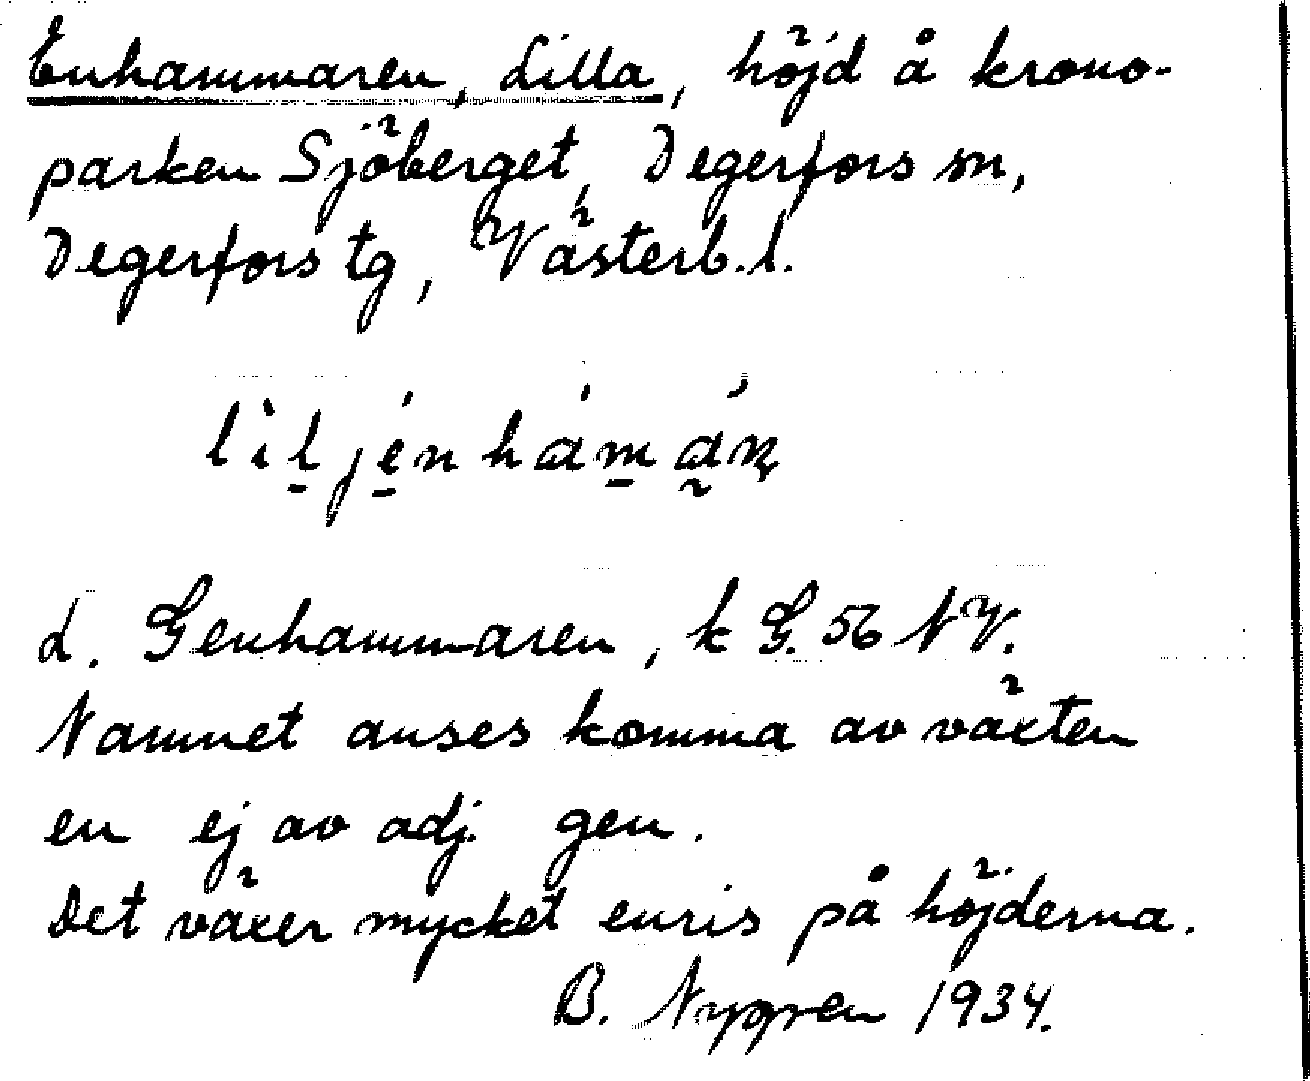 Enhammaren, Lilla, höjd å krono-
parken Sjöberget, Degerfors sn,
Degerfors tg, Västerb. l.
L. Genhammaren, k G. 56 NV.
Namnet anses komma av växten
en ej av adj. gen.
Det växer mycket enris på höjderna.
B. Nygren 1934.